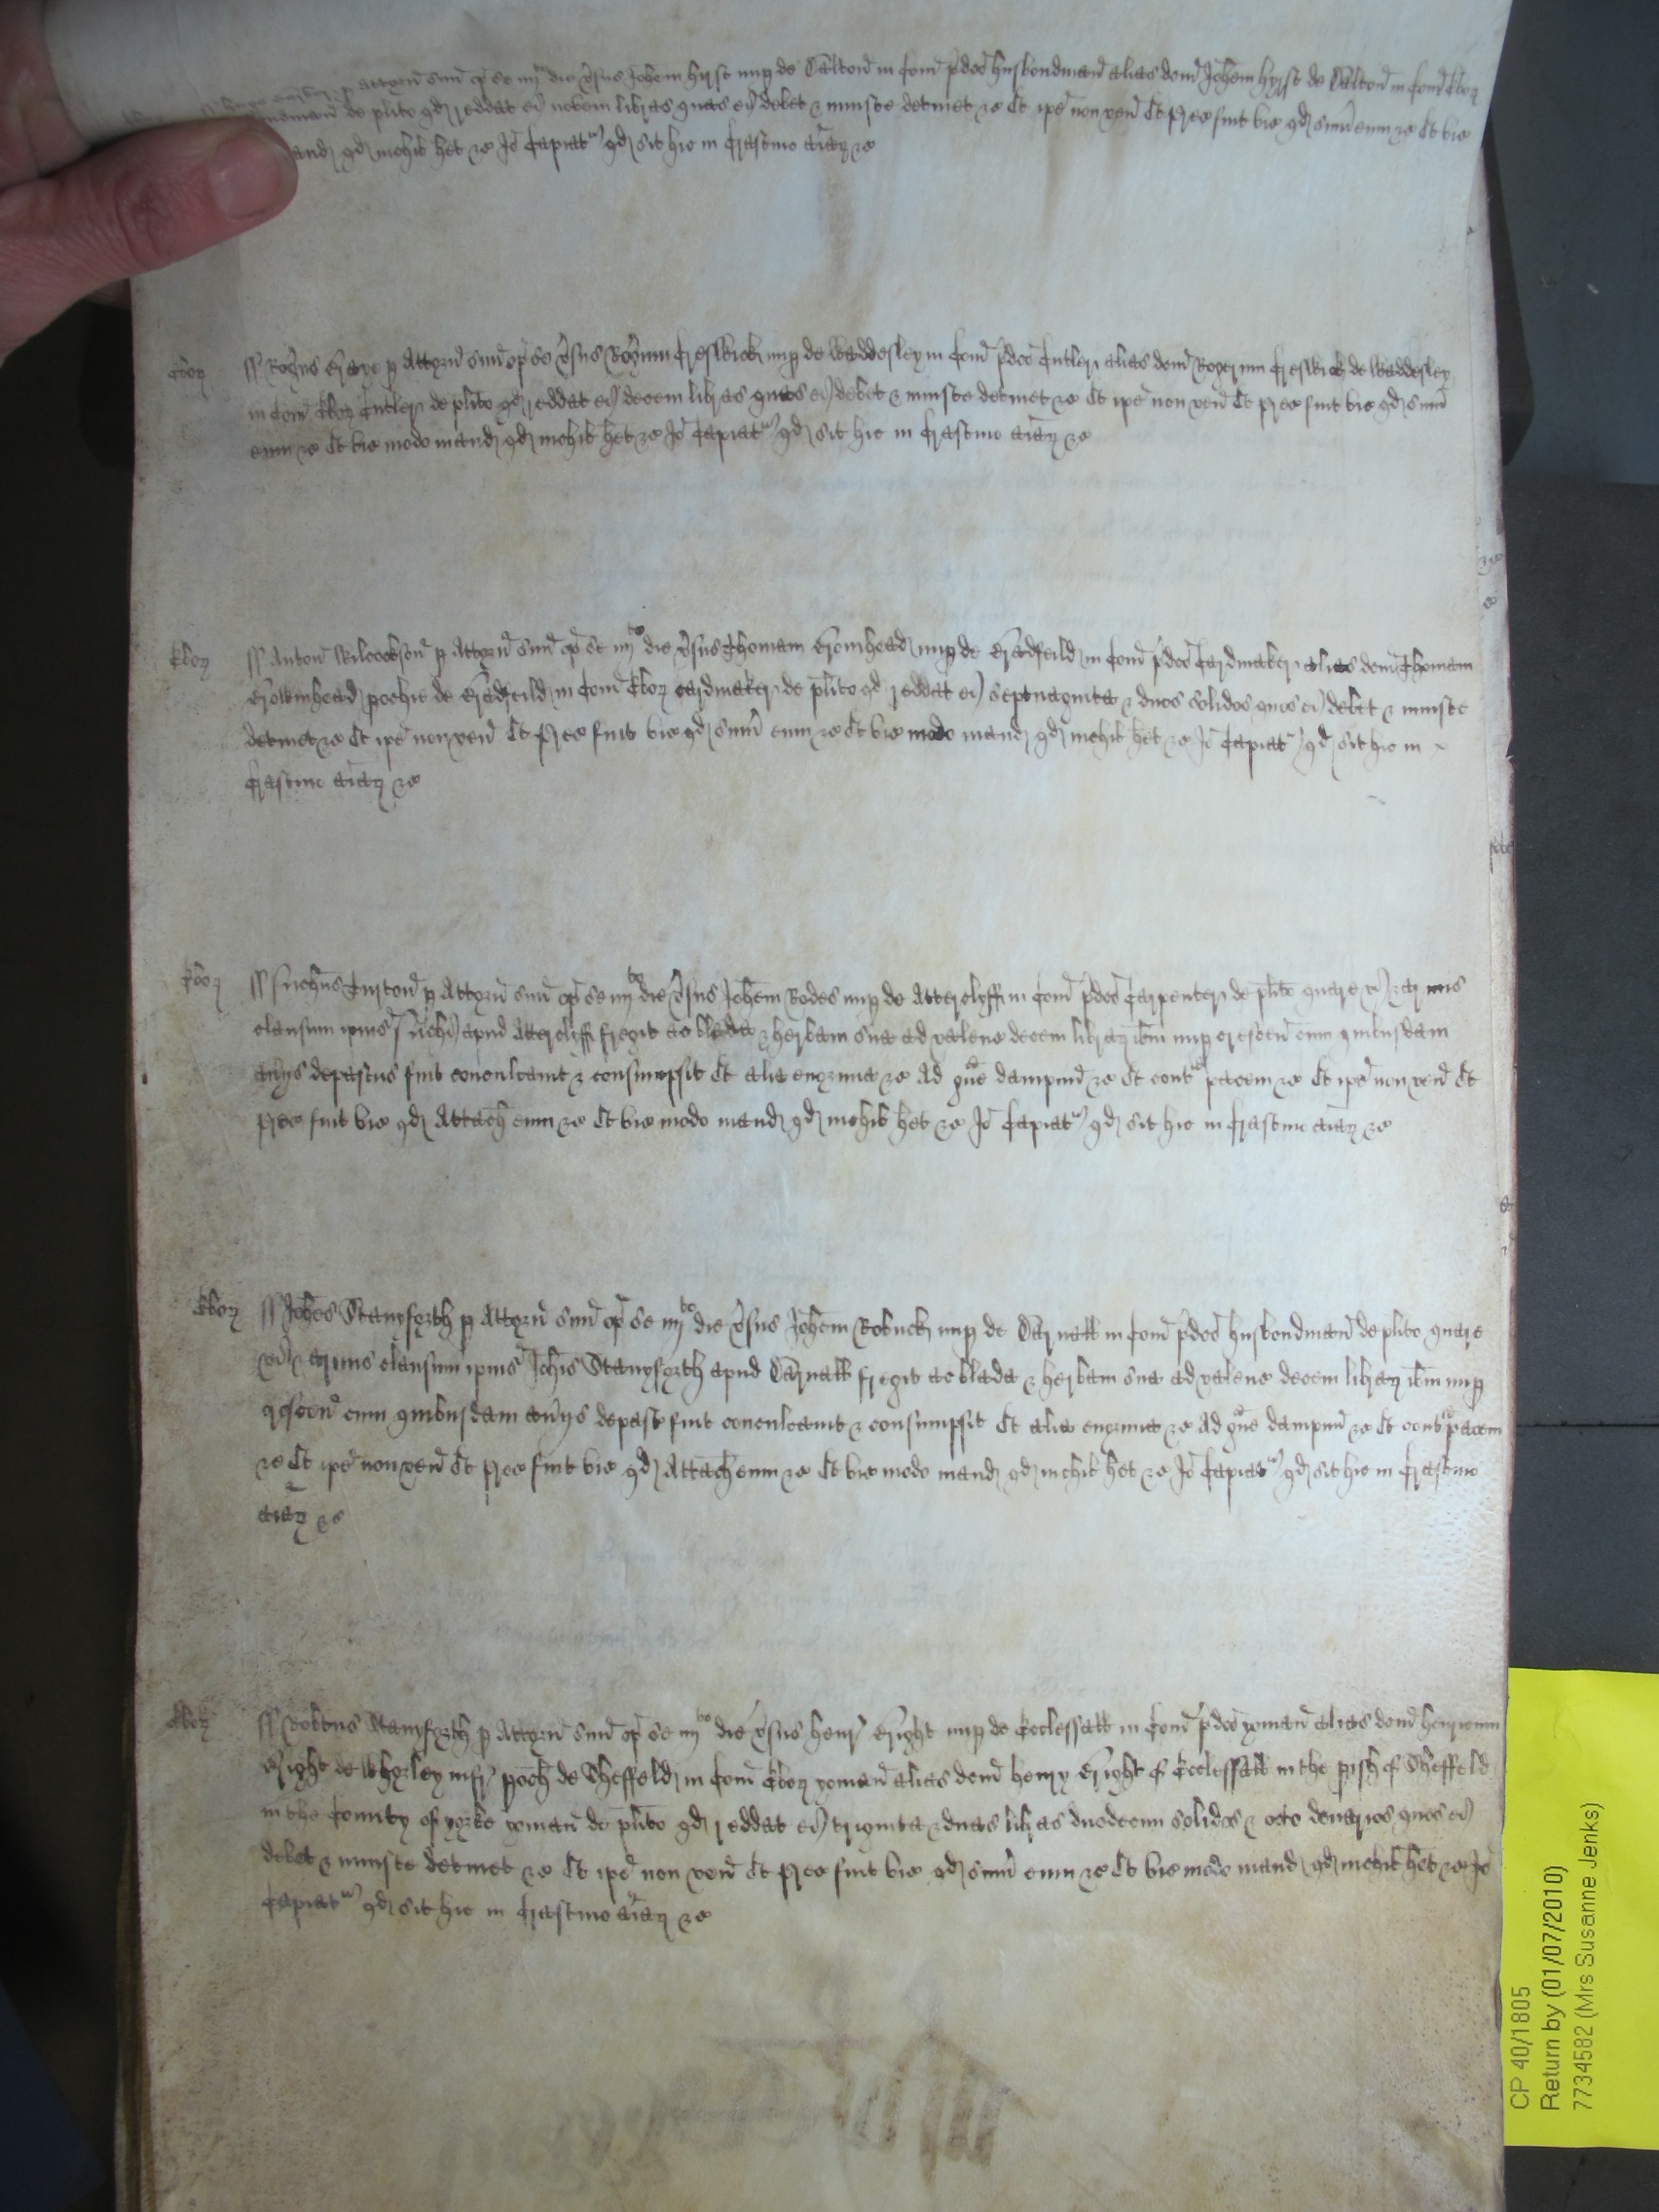 p Attorn suu op se iiij to die vsus Johem Hyrst nup de Dalton in Com pdco husbondman alias dcm Johem Hyrst de Dalton in Com Ebor
de plito qd reddat ei novem libras quas ei debet & iniuste detinet &c Et ipe non ven Et prec fuit vic qd sum eum &c Et vic
mand qd nichil het &c Io Capiat qd sit hic in Crastino aiar &c
Ebor
ss Rogus p Attorn suu op se vsus Rogum Creswick nup de Waddesley in Com pdco Cutler alias dcm Rogerum Creswick de Waddesley
in Com Ebor Cutler de plito qd reddat ei decem libras quas ei debet & iniuste detinet &c Et ipe non ven Et prec fuit vic qd sum
eum &c Et vic modo mand qd nichil het &c Io Capiat qd sit hic in Crastino aiar &c
Ebor
ss Anton Wilcockson p Attorn suu op se iiij to die vsus Thomam Bromhead nup de Bradfeild in Com pdco Cardmaker alias dcm Thomam
Bromhead poch de Bradfeild in Com Ebor cardmaker de plito qd reddat ei septuaginta & duos solidos quos ei debet & iniuste
detinet &c Et ipe non ven Et prec fuit vic qd sum eum &c Et vic modo mand qd nichil het &c Io Capiat qd sit hic in
Crastino aiar &c
Ebor
ss Michus Turton p Attorn suu op se iiij to die vsus Johem Rodes nup de Attercliff in Com pdco Carpenter de plito quare vi & armis
clausum ipius Michi apud Attercliff fregit ac blada & herbam sua ad valenc decem librar ibm nup crescen cum quibusdam
aiijs depastus fuit conculcavit & consumpsit Et alia enormia &c Ad grave dampnu &c Et contra pacem &c Et ipe non ven Et
prec fuit vic qd Attach eum &c Et vic modo mand qd nichil het &c Io Capiat qd sit hic in Crastino aiar &c
Ebor
ss Johes Stanyforth p Attorn suu op se iiij to die vsus Johem Robuck nup de Darnall in Com pdco husbondman de plito quare
vi & armis clausum ipius Johis Stanyforth apud Darnall fregit ac blada & herbam sua ad valenc decem librar ibm nup
crescen cum quibusdam aiijs depast fuit conculcavit & consumpsit Et alia enormia &c Ad grave dampnu &c Et contra pacem
&c Et ipe non ven Et prec fuit vic qd Attach eum &c Et vic modo mand qd nichil het &c Io Capiat qd sit hic in Crastino
aiar &c
Ebor
ss Robtus Stanyforth p Attorn suu op se iiij to die vsus Henr Bright nup de Ecclessall in Com pdco yoman alias dcm Henricum
Bright de Whorley infr poch de Sheffeld in Com Ebor yoman alias dcm Henry Bright of Ecclessall in the pish of Sheffeld
in the County of yorke yoman de plito qd reddat ei triginta & duas libras duodecim solidos & octo denarios quos ei
debet & iniuste detinet &c Et ipe non ven Et prec fuit vic qd sum eum &c Et vic modo mand qd nichil het &c Io
Capiat qd sit hic in Crastino aiar &c
CP 40/1805
Return by (01/07/2010)
7734582 (Mrs Susanne Jenks)